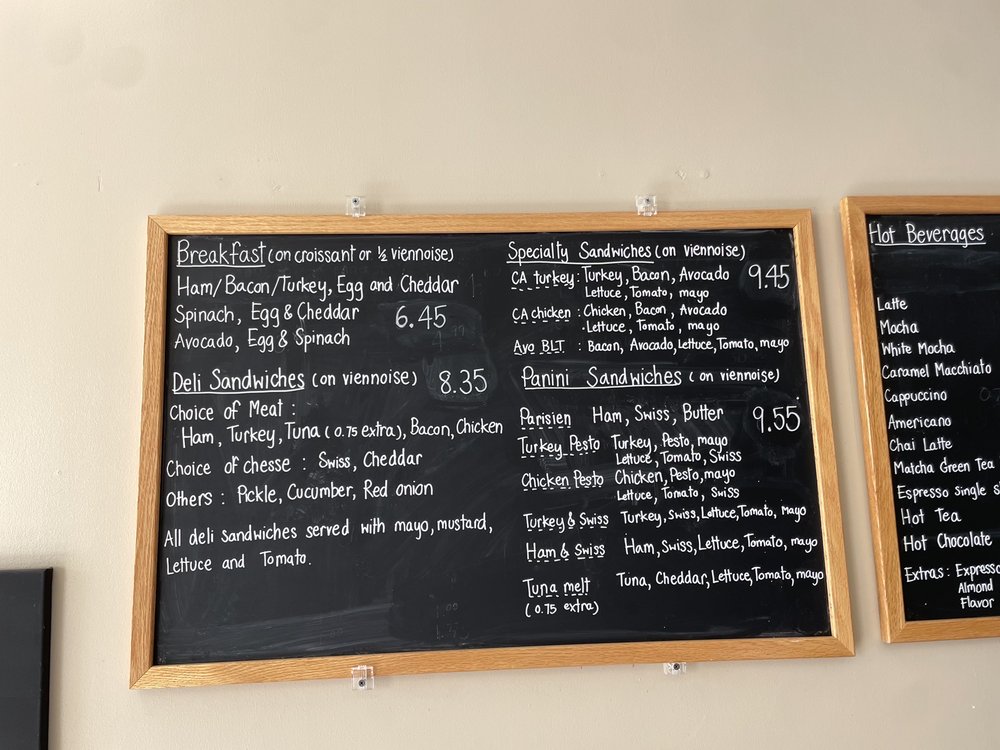 Breakfast (on croissant or ½ viennoise)
Ham/Bacon/Turkey, Egg and Cheddar
Spinach, Egg & Cheddar 6.45
Avocado, Egg & Spinach
Deli Sandwiches (on viennoise) 8.35
Choice of Meat :
Ham, Turkey, Tuna (0.75 extra), Bacon, Chicken
Choice of chesse : Swiss, Cheddar
Others : Pickle, Cucumber, Red onion
All deli sandwiches served with mayo, mustard,
Lettuce and Tomato.
Specialty Sandwiches (on viennoise)
CA turkey : Turkey, Bacon, Avocado 9.45
Lettuce, Tomato, mayo
CA chicken : Chicken, Bacon, Avocado
Lettuce, Tomato, mayo
Avo BLT : Bacon, Avocado, Lettuce, Tomato, mayo
Panini Sandwiches (on viennoise)
Parisien Ham, Swiss, Butter 9.55
Turkey Pesto Turkey, Pesto, mayo
Lettuce, Tomato, Swiss
Chicken Pesto Chicken, Pesto, mayo
Lettuce, Tomato, Swiss
Turkey & Swiss Turkey, Swiss, Lettuce, Tomato, mayo
Ham & Swiss Ham, Swiss, Lettuce, Tomato, mayo
Tuna melt Tuna, Cheddar, Lettuce, Tomato, mayo
(0.75 extra)
Hot Beverages
Latte
Mocha
White Mocha
Caramel Macchiato
Cappuccino
Americano
Chai Latte
Matcha Green Tea
Espresso single
Hot Tea
Hot Chocolate
Extras : Expresso
Almond
Flavor